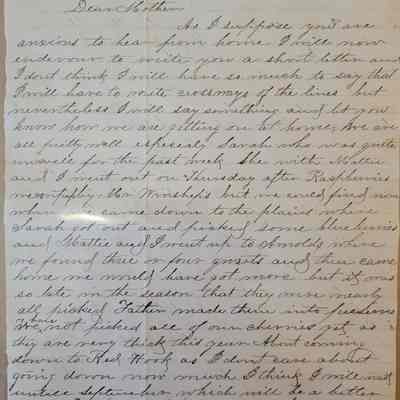 Dear Mother
As I suppose you are
anxious to hear from home I will now
endevour to write you a short letter and
I dont think I will have so much to say that
I will have to write crossways of the lines but
nevertheless I will say something and let you
know how we are getting on at home, We are
all pretty well especialy Sarah who was quite
unwell for the past week She with Mattie
and I went out on Thursday after Raspberries
up by Mr Winships but we could find none
when we came down to the plains where
Sarah got out and picked some blueberries
and Mattie and I went up to Arnolds where
we found three or four quarts and then came
home we would have got more but it was
so late in the season that they were nearly
all picked Father made them into
We have not picked all of our cherries yet as
they are very thick this year About coming
down to Red Hook as I dont care about
going down now much I think I will wait
untill September which will be a better